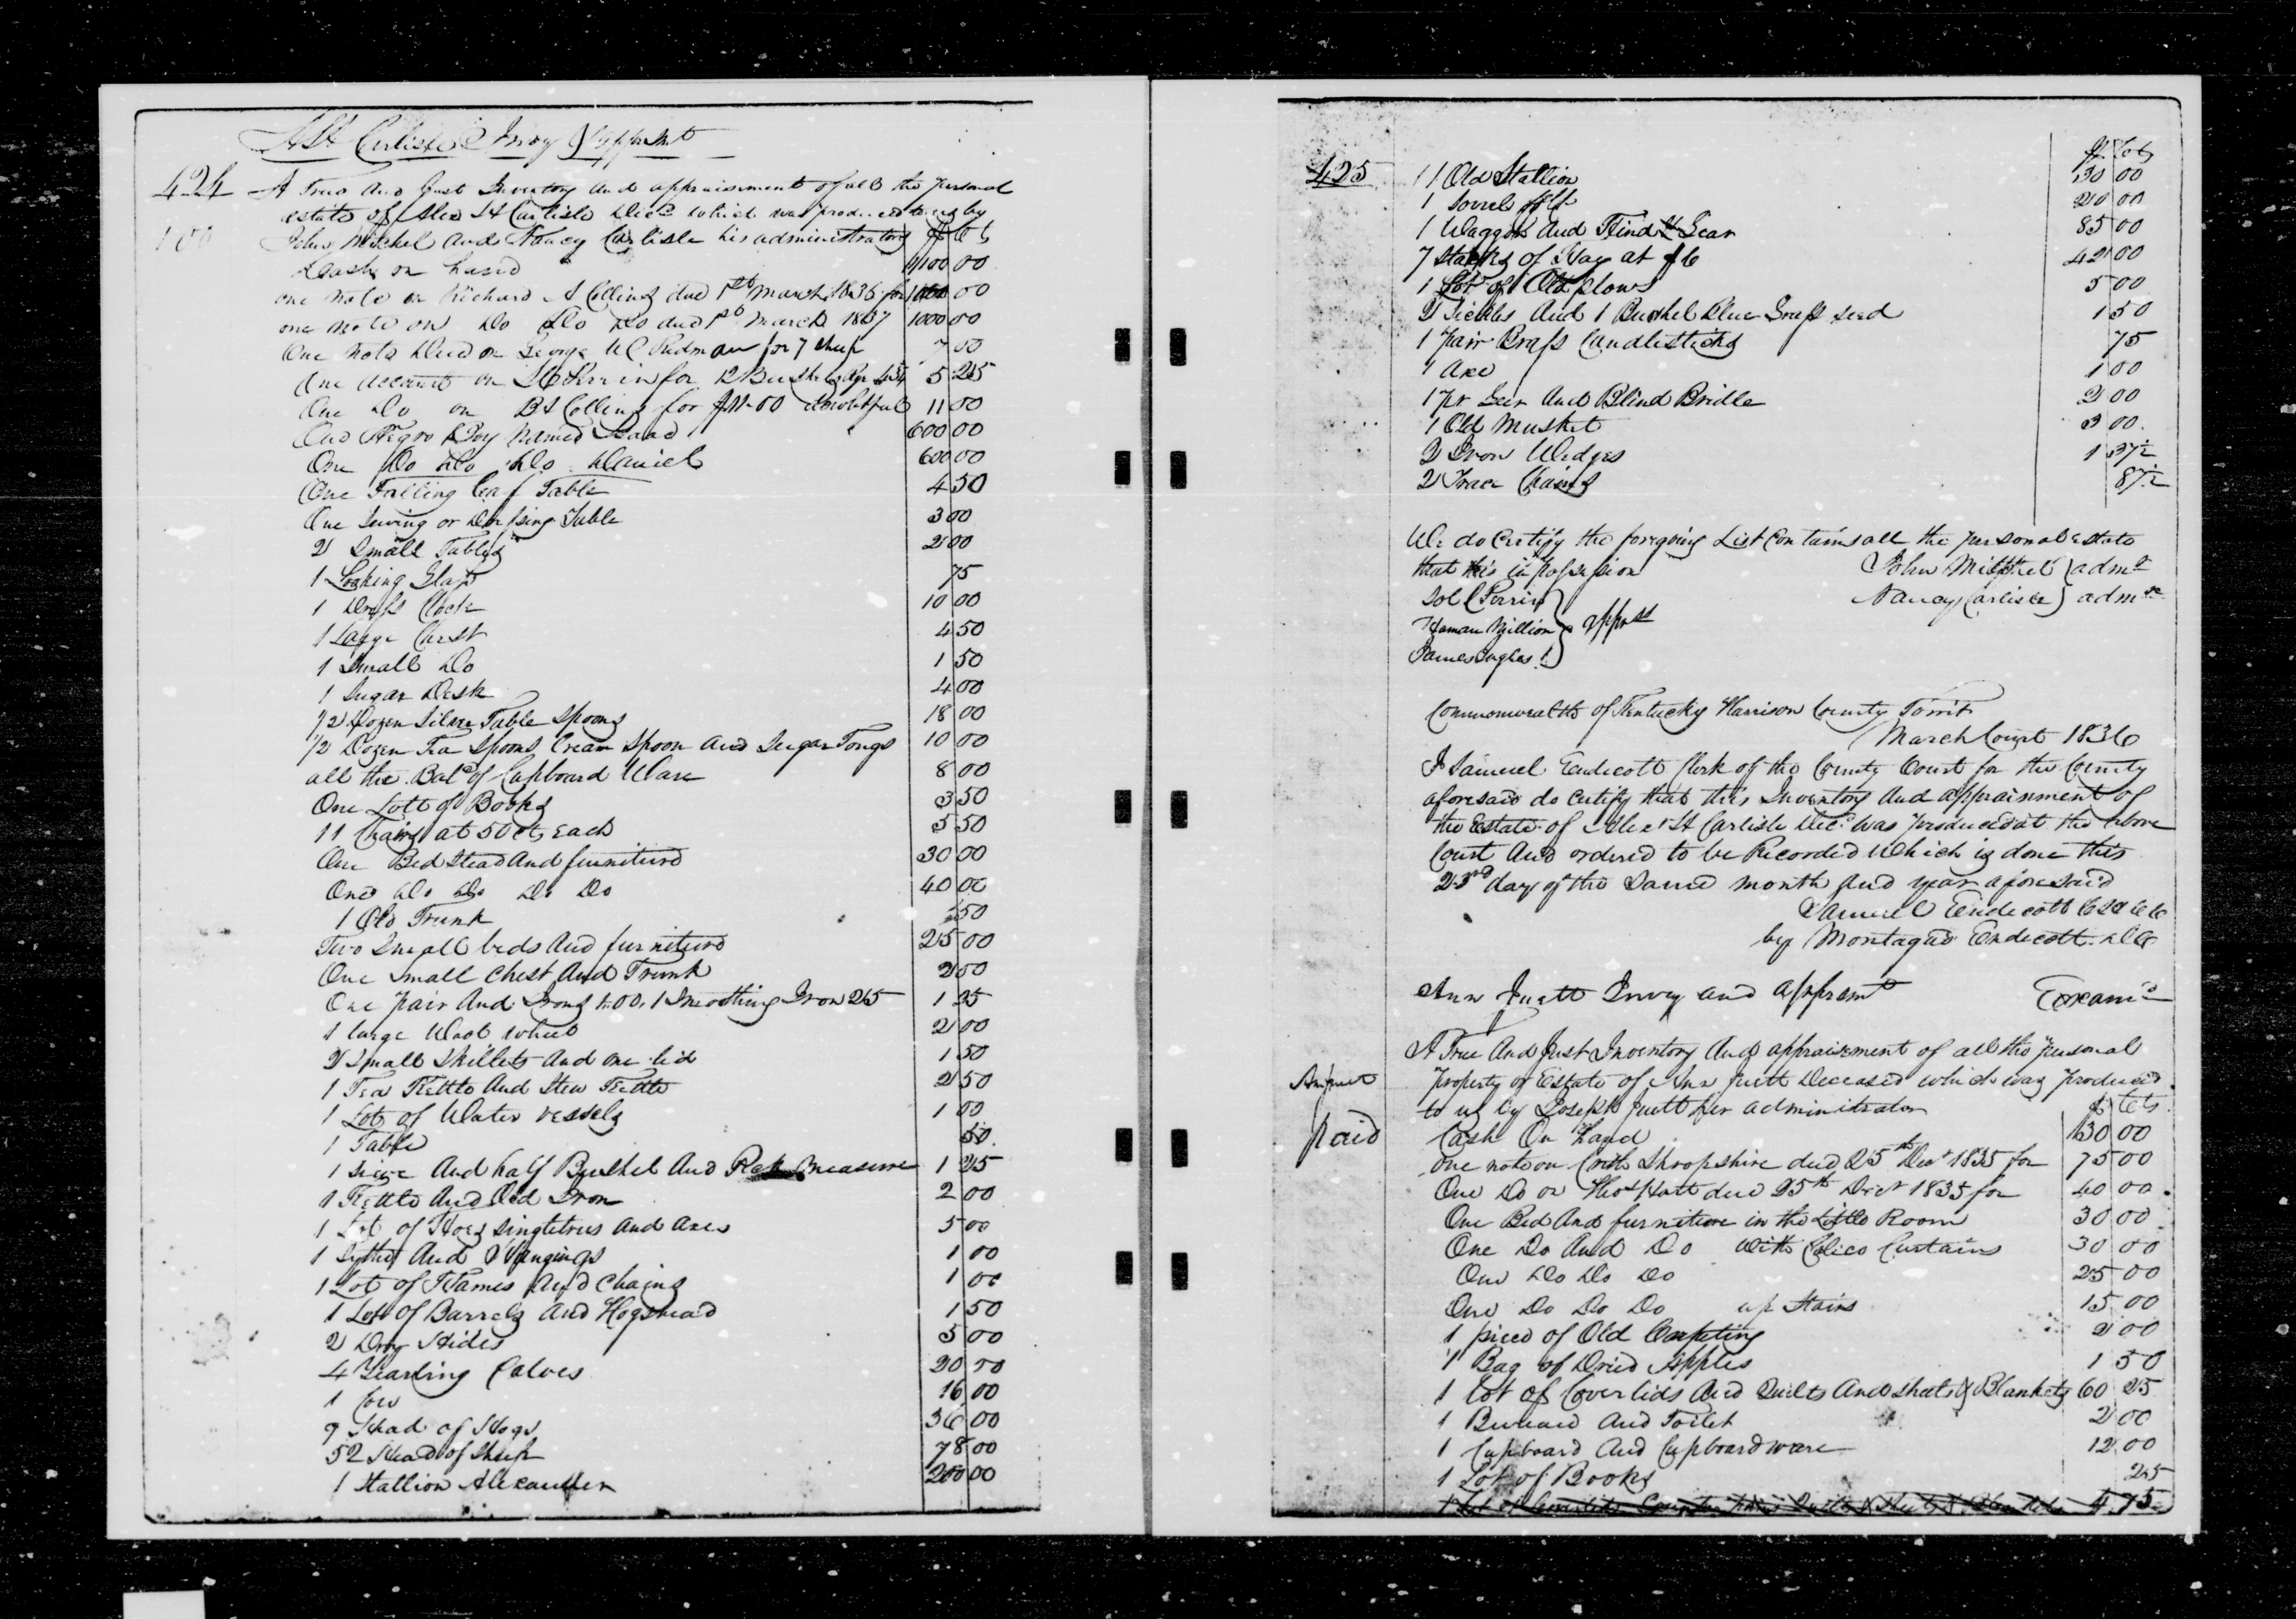 A H Carlisle Invoy & Apprsmt
424 A True And Just Inventory and appraisment of all the personal
estate of Alex H Carlisle Decd which was produced to us by
100 John Mitchel and Nancy Carlisle his administrators $ Cts
Cash on hand 1100 00
one note on Richard A Collins due 1st March 1836 for 1000 00
one note on Do Do Do due 1st March 1837 1000 00
One note Due on George W C Redmon for 7 sheep 7 00
One account on Perrin for 12 Bushels Rye 5 25
One Do on B H Collins for $11-00 doubtful 11 00
One Negro Boy named Isaac 600 00
One Do Do Do Daniel 600 00
One Falling leaf Table 4 50
One Sewing or Dressing Table 3 00
2 Small Tables 2 00
1 Looking Glass 75
1 Brass Clock 10 00
1 Large Chest 4 50
1 Small Do 1 50
1 Sugar Desk 4 00
1/2 Dozen Silver Table Spoons 18 00
1/2 Dozen Tea Spoons Cream Spoon and Sugar Tongs 10 00
all the Balc of Cupboard Ware 8 00
One Lott of Books 3 50
11 Chairs at 50 cts Each 5 50
One Bed Stead And furniture 30 00
One Do Do Do Do 40 00
1 Old Trunk 50
Two Small beds And furniture 25 00
One Small Chest And Trunk 2 50
One pair And Irons 1.00, 1 Smoothing Iron 25 1 25
1 large Wool wheel 2 00
2 Small Skillets And one lid 1 50
1 Tea Kettle And Stew Kettle 2 50
1 Lot of Water vessels 1 00
1 Table 50
1 Sieve And half Bushel And Peck measure 1 25
1 Kettle And Old Iron 2 00
1 Lot of Hoes singletrees and axes 5 00
1 Sythe And Hangings 1 00
1 Lot of Hames And Chains 1 00
1 Lot of Barrels and Hogshead 1 50
2 Dry Hides 5 00
4 Yearling Calves 20 00
1 Cow 16 00
9 Head of Hogs 36 00
52 Head of Sheep 78 00
1 Stallion Alexander 200 00
425 $ Cts
1 Old Stallion 30 00
1 Sorrel 20 00
1 Waggon And Hind Gear 85 00
7 Stacks of Hay at $6 42 00
1 Lot of Old plows 5 00
2 Sickles And 1 Bushel Blue Grass seed 1 50
1 Pair Brass Candlesticks 75
1 Axe 1 00
1 pr Gear And Blind Bridle 2 00
1 Old Musket 3 00
2 Iron Wedges 1 37½
2 Trace Chains 87½
We do Certify the foregoing List Contains all the personal estate
that his in possession John Mitchel } admr
Sol C Perrin Nancy Carlisle } admrx
Haman Million } apprs
James Ingles
Commonwealth of Kentucky Harrison County Towit
March Court 1836
I Samuel Endicott Clerk of the County Court for the County
aforesaid do certify that this Inventory And appraisment of
the Estate of Alexr H Carlisle Decd was produced at the above
Court And ordered to be Recorded Which is done this
23rd day of the Same month And year aforesaid
Samuel Endicott C H C C
by Montague Endicott D C
Ann Juett Invoy and Apprsmt Examd
A True And Just Inventory And appraisement of all the personal
property or Estate of Ann Juett Deceased which was produced
to us by Joseph Juett her administrator $ Cts
paid Cash On hand 130 00
One note on Shropshire due 25th Dec 1835 for 75 00
One Do on Thos Hatt due 25th Decr 1835 for 40 00
One Bed And furniture in the Little Room 30 00
One Do And Do with Calico Curtains 30 00
One Do Do Do 25 00
One Do Do Do up Stairs 15 00
1 piece of Old Carpeting 2 00
1 Bag of Dried Apples 1 50
1 lot of Coverlids And Quilts And sheets & Blankets 60 25
1 Bureau And Toilet 2 00
1 Cupboard And Cupboard ware 12 00
1 Lot of Books 25
1 Lot of Coverlids Quilts & Sheets & Blankets 4.75